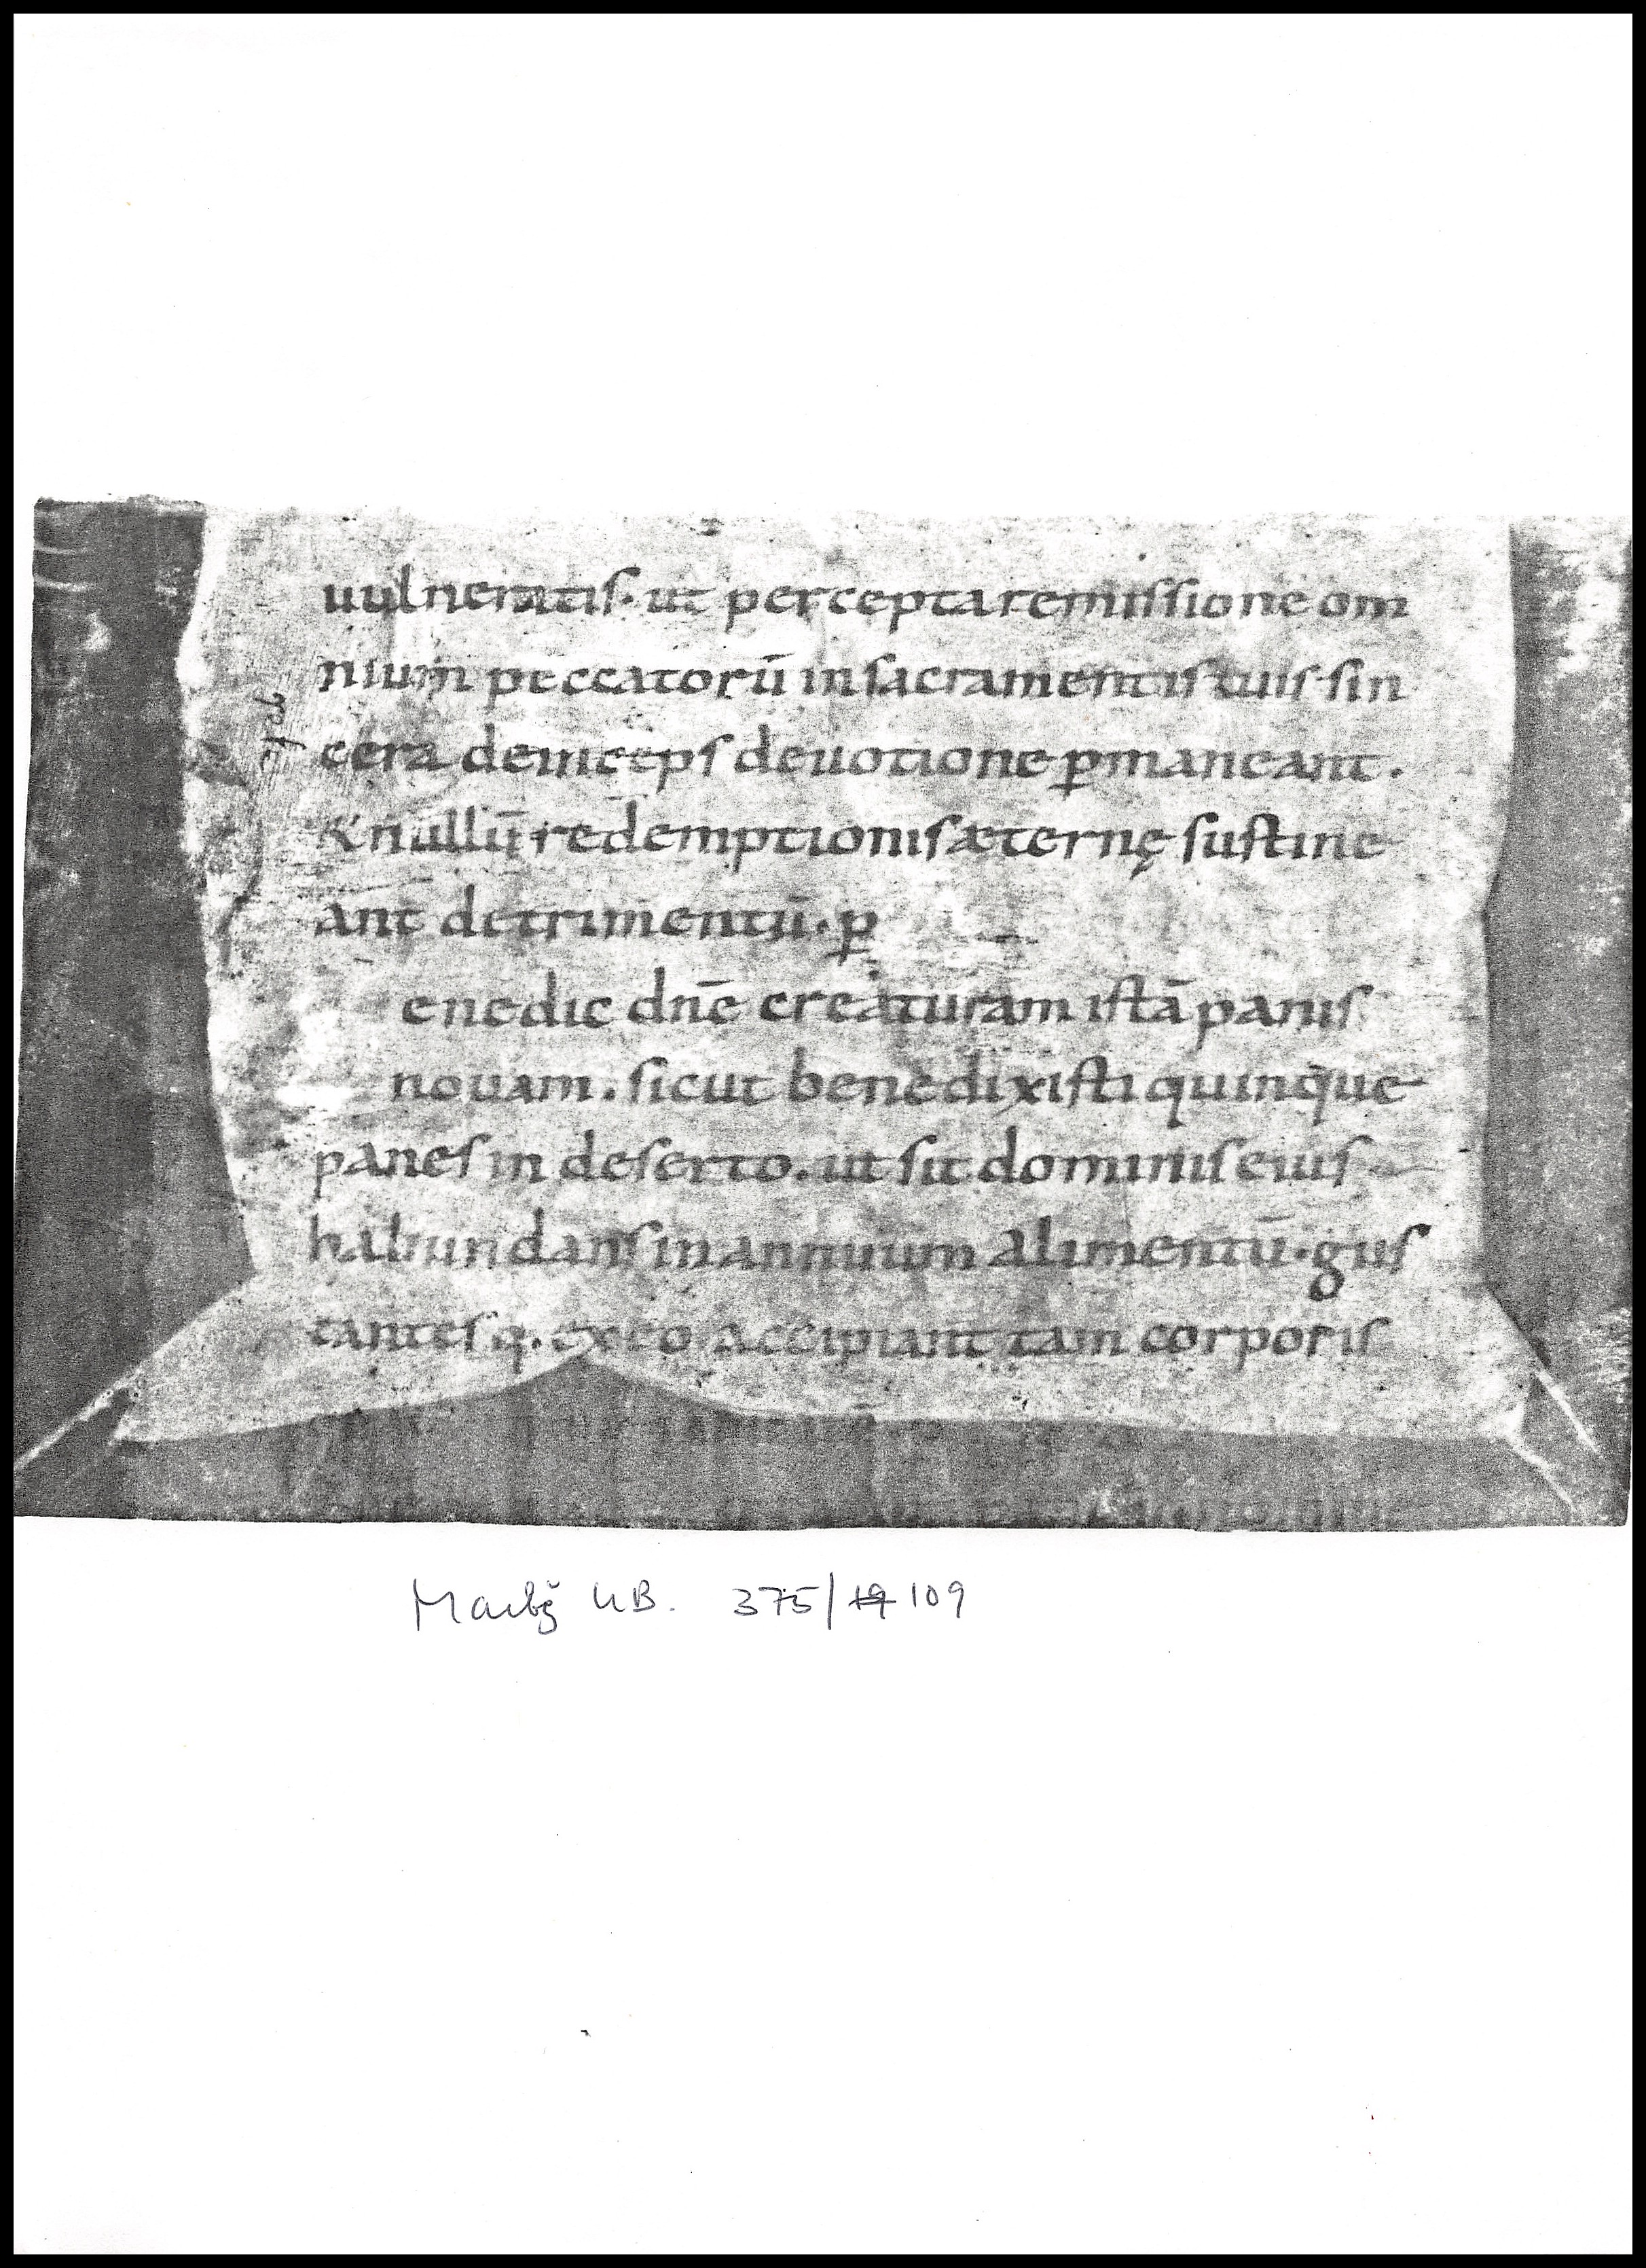 uulneratis · ut percepta remissione om
nium peccatorū in sacramentis tuis sin
cera deinceps deuotione ꝑmaneant .
& nullū redemptionis æternę sustine
ant detrimentū · ꝑ
enedic dnē creaturam istā panis
nouam . sicut benedixisti quinque
panes in deserto . ut sit dominis eius
habundans in annuum alimentū · gus
tantesq. ex eo accipiant tam corporis
Marbg UB. 375/ 109